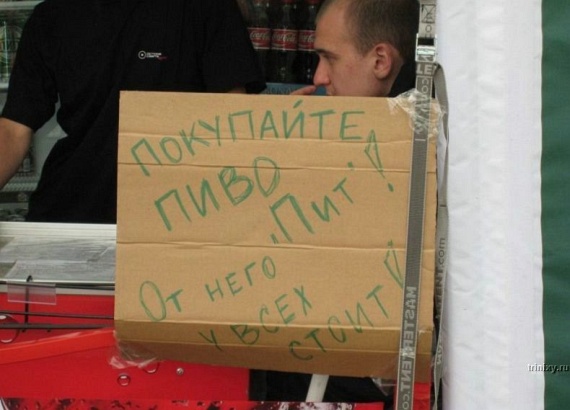 ПОКУПАЙТЕ
ПИВО
"Пит"!
От него
у всех
стоит!
MASTERTENT.com
trinixy.ru